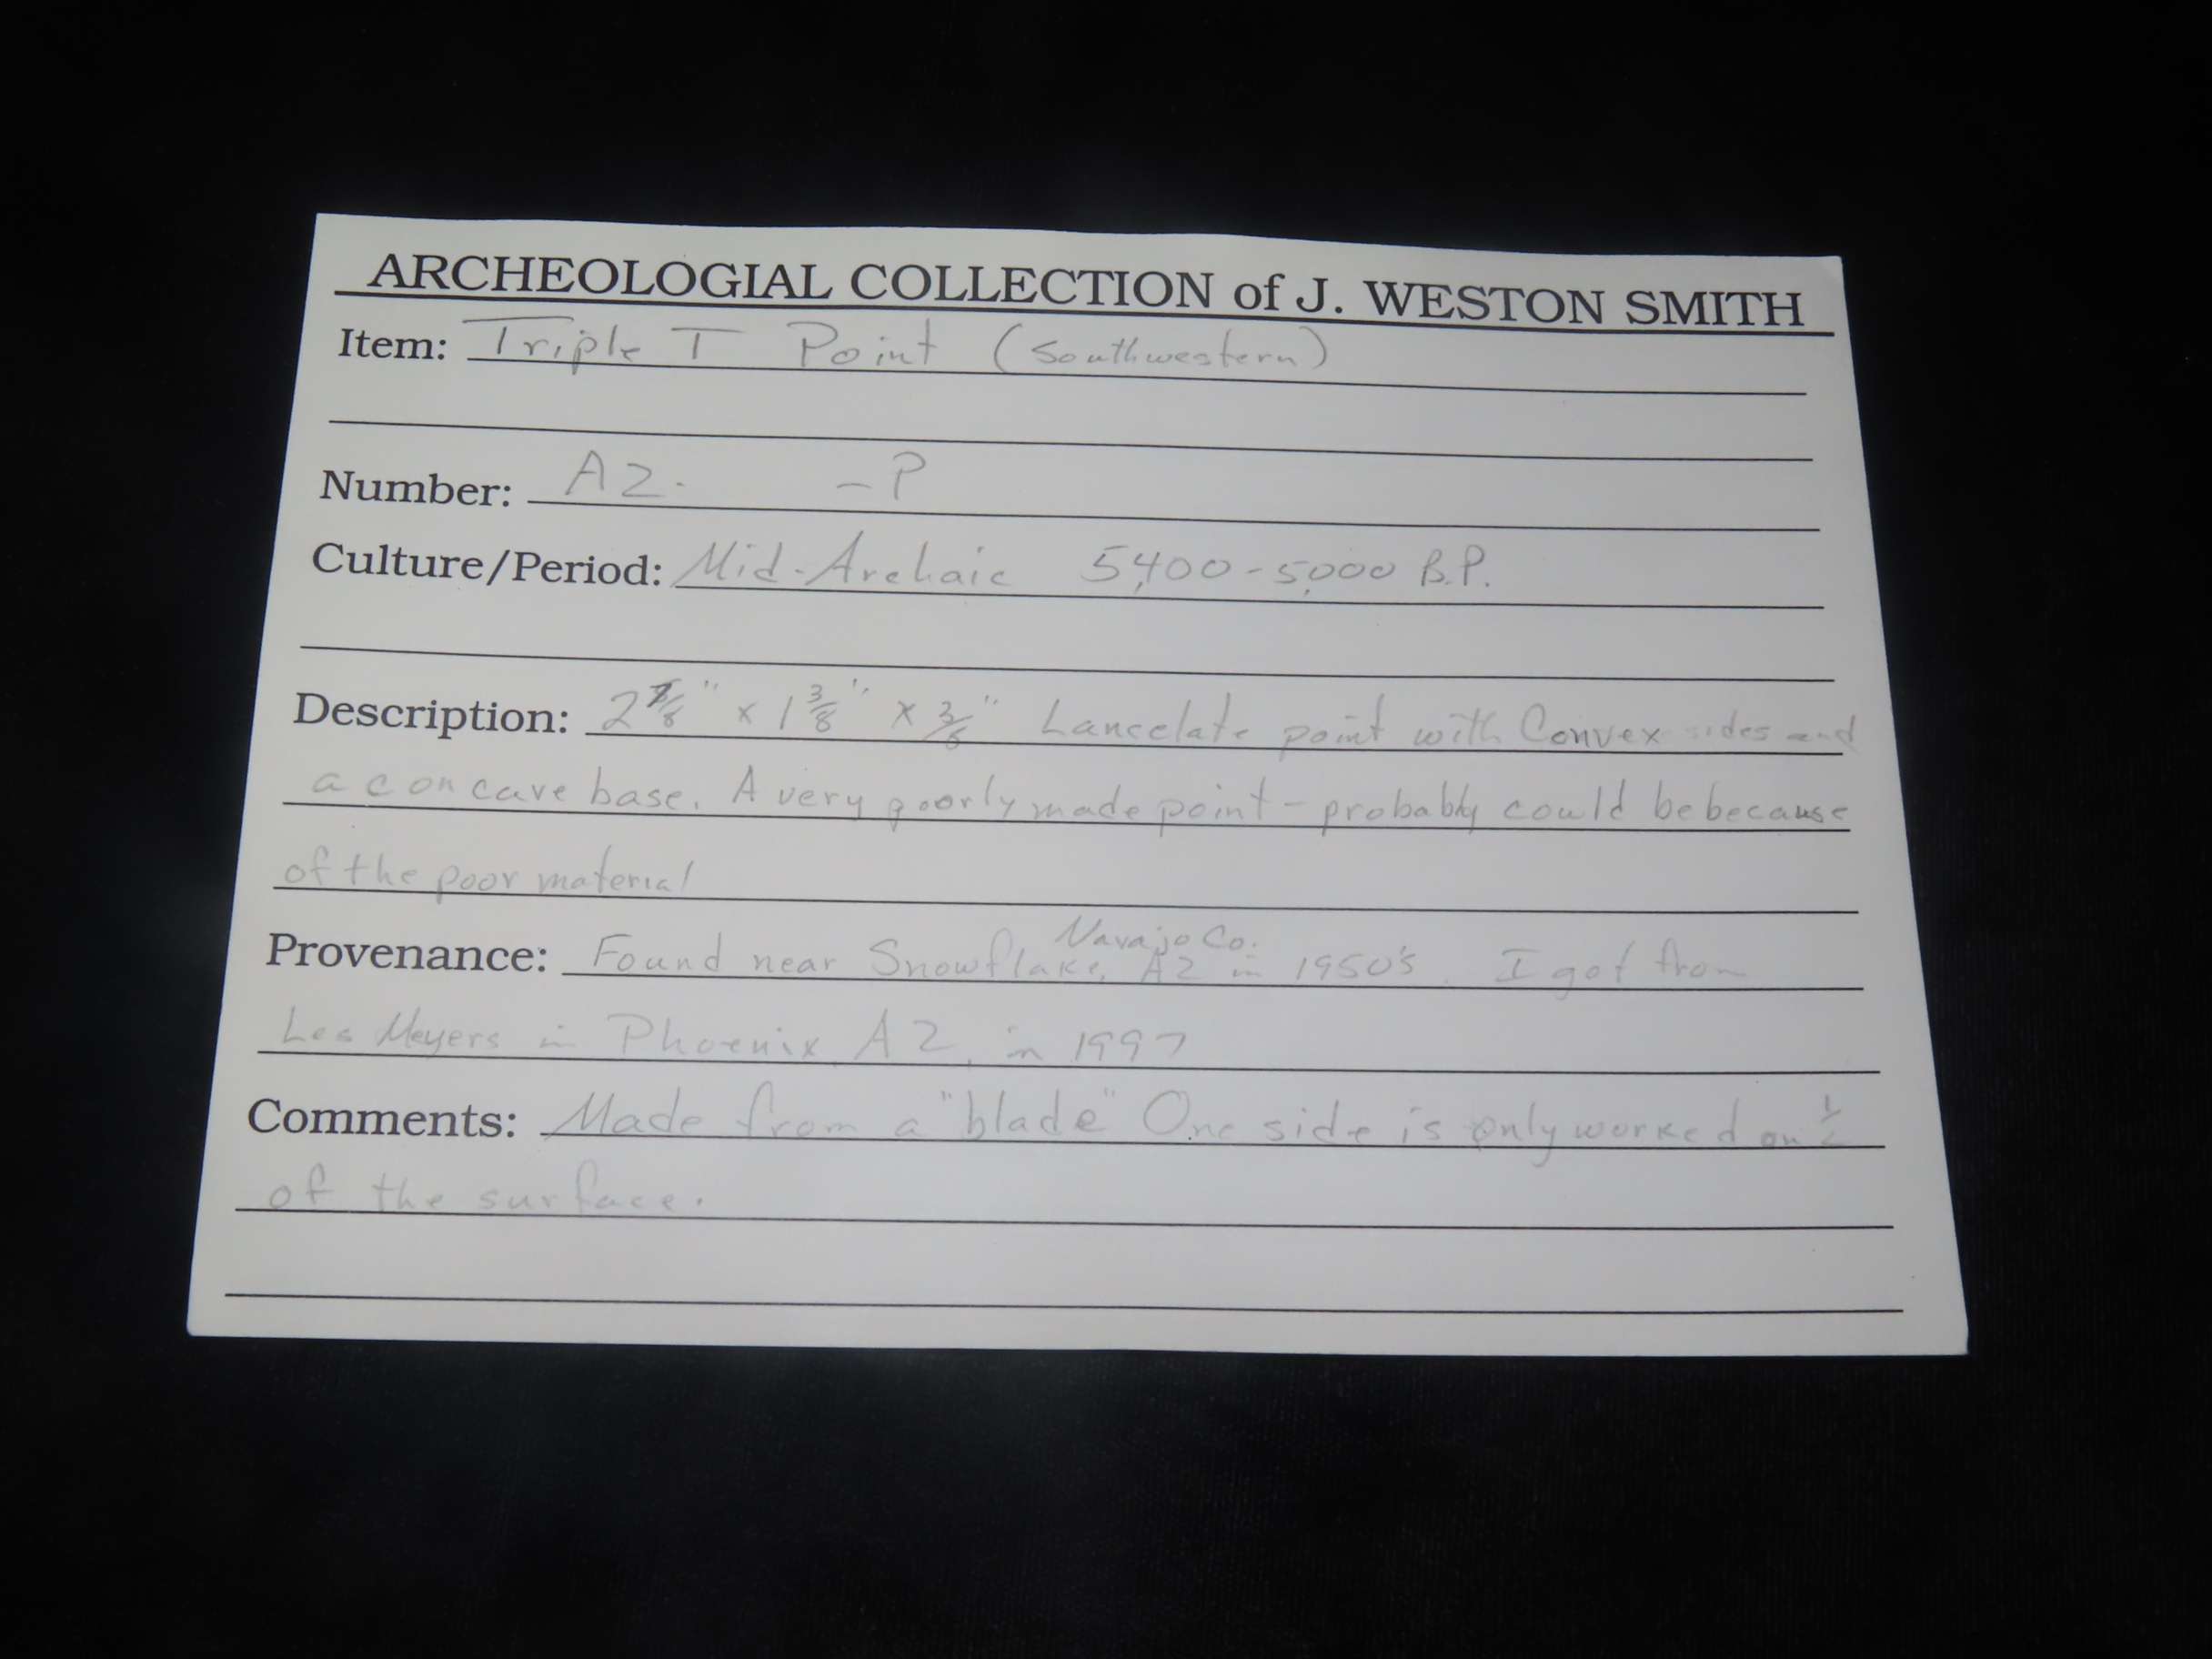 ARCHEOLOGIAL COLLECTION of J. WESTON SMITH
Item: Triple T Point (Southwestern)
Number: AZ. -P
Culture/Period: Mid-Archaic 5,400-5,000 B.P.
Description: 2 7/8" x 1 3/8" x 3/8" Lancelate point with Convex sides and
a concave base. A very poorly made point - probably could be because
of the poor material
Navajo Co.
Provenance: Found near Snowflake, AZ in 1950's. I got from
Les Meyers in Phoenix, AZ, in 1997
Comments: Made from a "blade" One side is only worked on 1/2
of the surface.